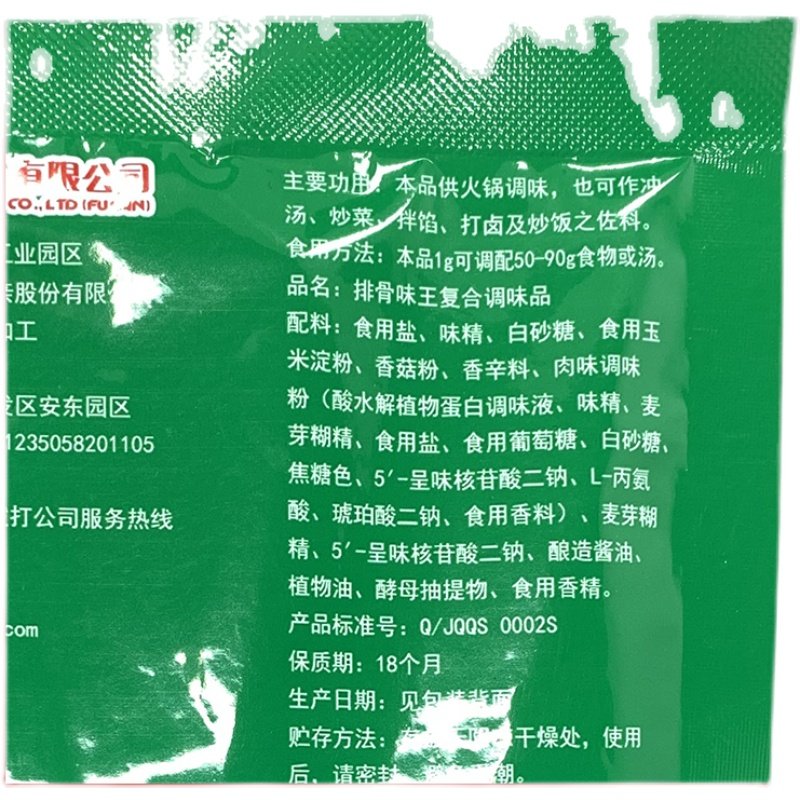 有限公司
CO.,LTD(FUJIAN)
工业园区
股份有限公
加工
发区安东园区
1235058201105
打公司服务热线
com
主要功用：本品供火锅调味，也可作冲
汤、炒菜、拌馅、打卤及炒饭之佐料。
食用方法：本品1g可调配50-90g食物或汤。
品名：排骨味王复合调味品
配料：食用盐、味精、白砂糖、食用玉
米淀粉、香菇粉、香辛料、肉味调味
粉（酸水解植物蛋白调味液、味精、麦
芽糊精、食用盐、食用葡萄糖、白砂糖、
焦糖色、5′-呈味核苷酸二钠、L-丙氨
酸、琥珀酸二钠、食用香料）、麦芽糊
精、5′-呈味核苷酸二钠、酿造酱油、
植物油、酵母抽提物、食用香精。
产品标准号：Q/JQQS 0002S
保质期：18个月
生产日期：见包装背面
贮存方法：干燥处，使用
后，请密封潮。